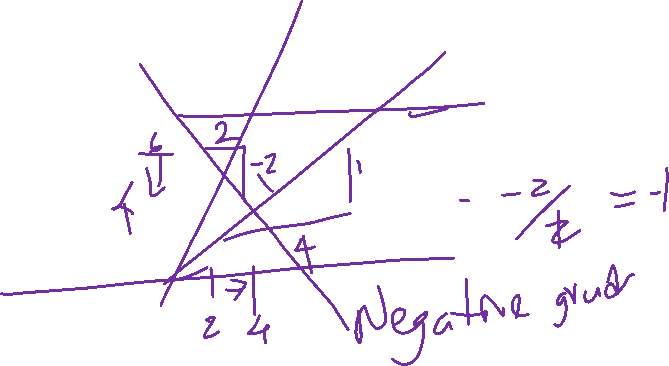 2
6
-2
1
- -2/2 = -1
4
2 → 4
Negative grad